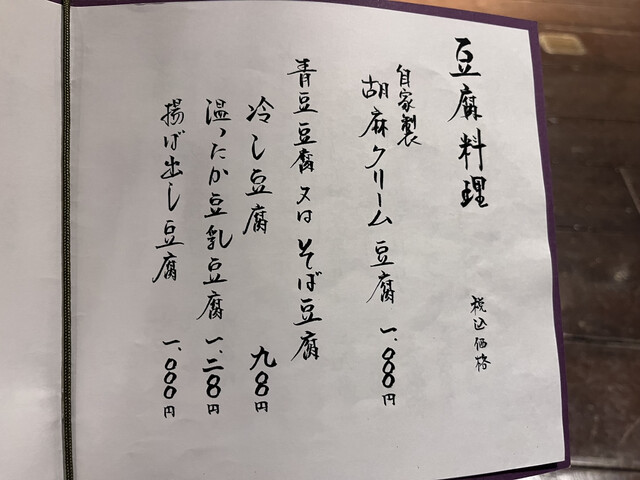 豆腐料理
税込価格
自家製
胡麻クリーム豆腐 一、〇〇〇円
青豆豆腐又はそば豆腐
冷し豆腐 九〇〇円
温ったか豆乳豆腐 一、二〇〇円
揚げ出し豆腐 一、〇〇〇円